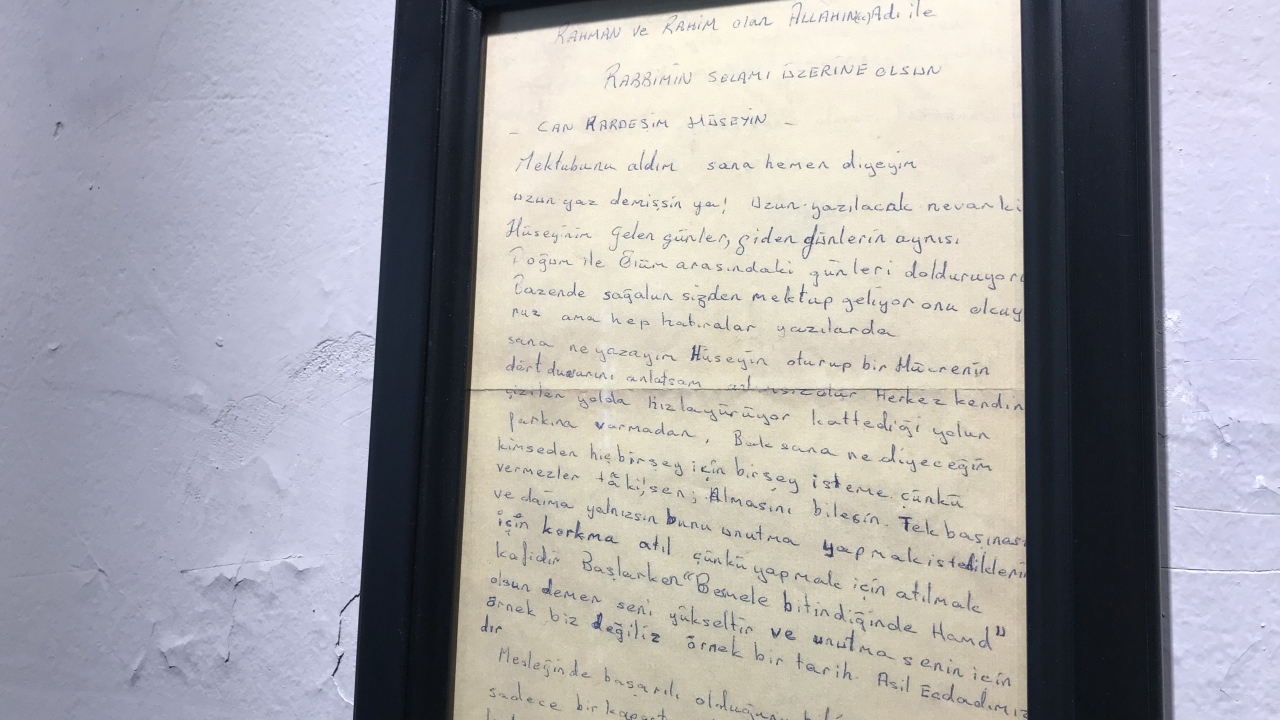 RAHMAN ve RAHİM olan ALLAHIN(cc)Adı ile
RABBİMİN SELAMI ÜZERİNE OLSUN
- CAN KARDEŞİM HÜSEYİN -
Mektubunu aldım sana hemen diyeyim
uzun yaz demişsin ya! Uzun yazılacak nevarki
Hüseyinim gelen günler, giden günlerin aynısı
Doğum ile Ölüm arasındaki günleri dolduruyoru
Bazende sağalun sizden mektup geliyor onu okuy
ruz ama hep hatıralar yazılarda
sana ne yazayım Hüseyin oturup bir Hücrenin
dört duvarını anlatsam Herkez kendin
çizilen yolda hızla yürüyor kattediği yolun
farkına varmadan. Bak sana ne diyeceğim
kimseden hiçbirşey için birşey isteme çünkü
vermezler tâki'sen; Almasını bilesin. Tek başınası
ve daima yalnızsın bunu unutma yapmak istediklerin
için korkma atıl çünkü yapmak için atılmak
kafidir Başlarken "Besmele bitindiğinde Hamd"
olsun demen seni yükseltir ve unutma senin için
örnek biz değiliz örnek bir tarih. Asil Ecdadımız
dır
Mesleğinde başarılı olduğunu
sadece bir